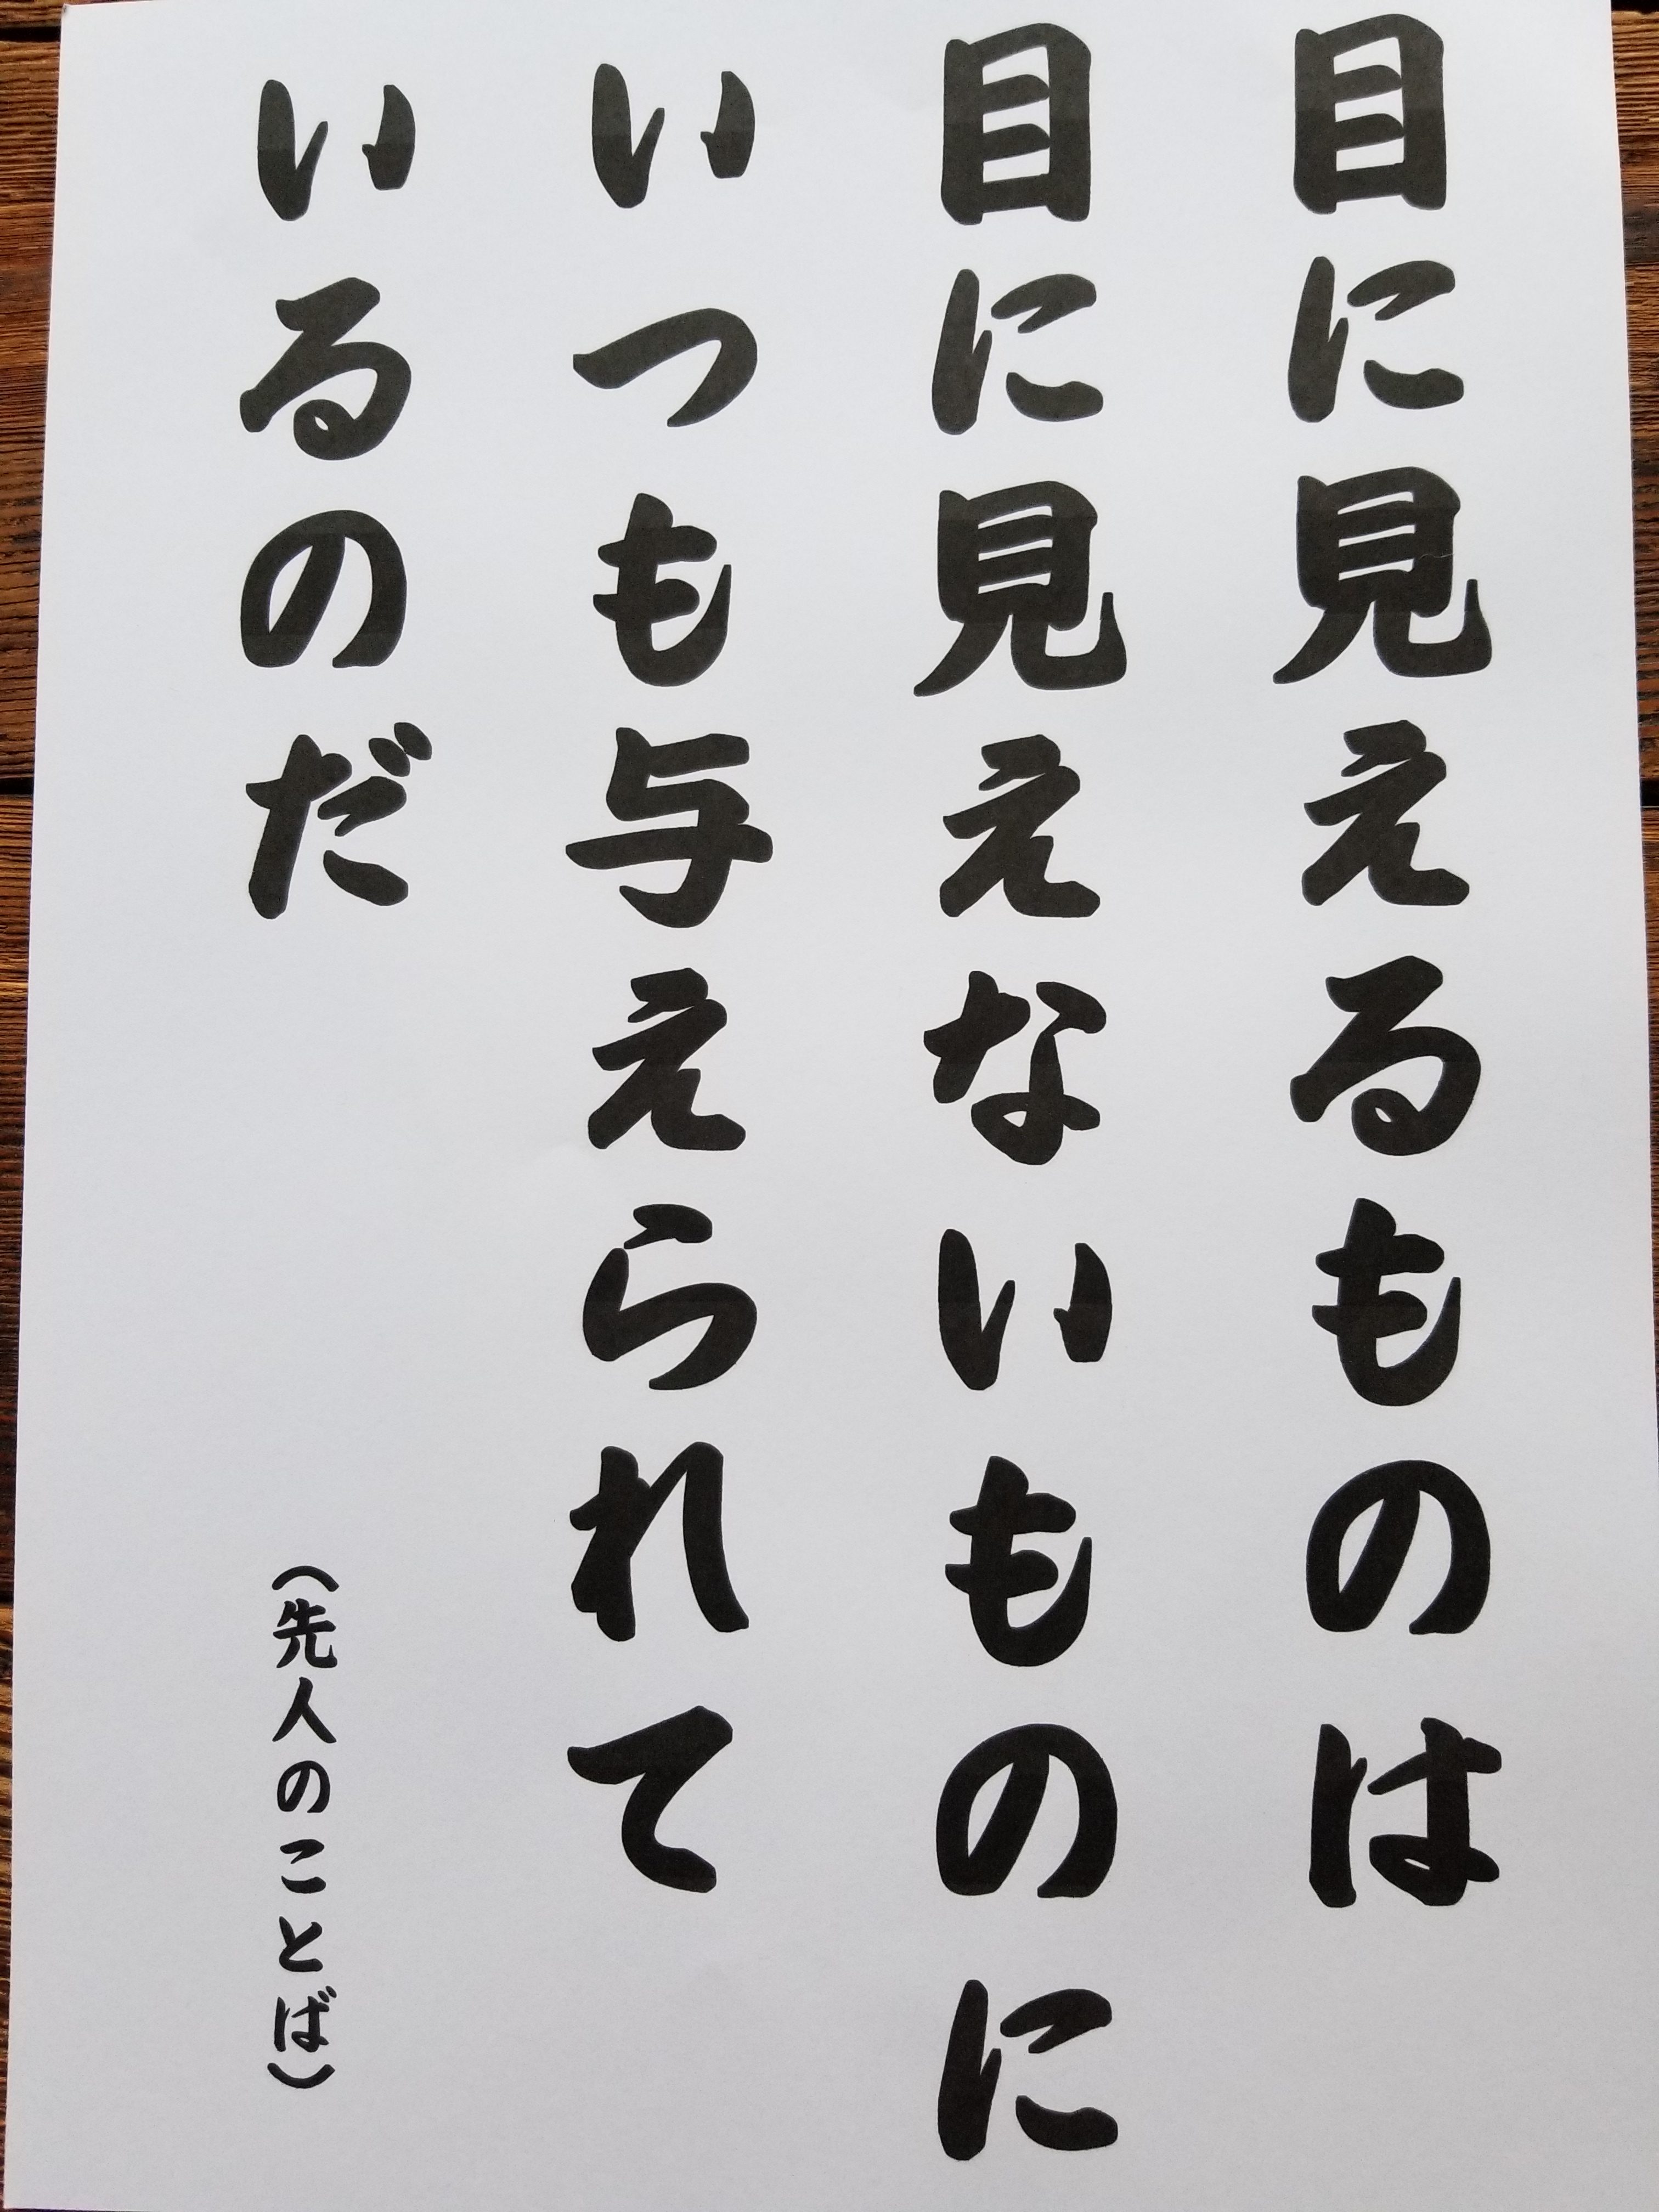 目に見えるものは
目に見えないものに
いつも与えられて
いるのだ
（先人のことば）